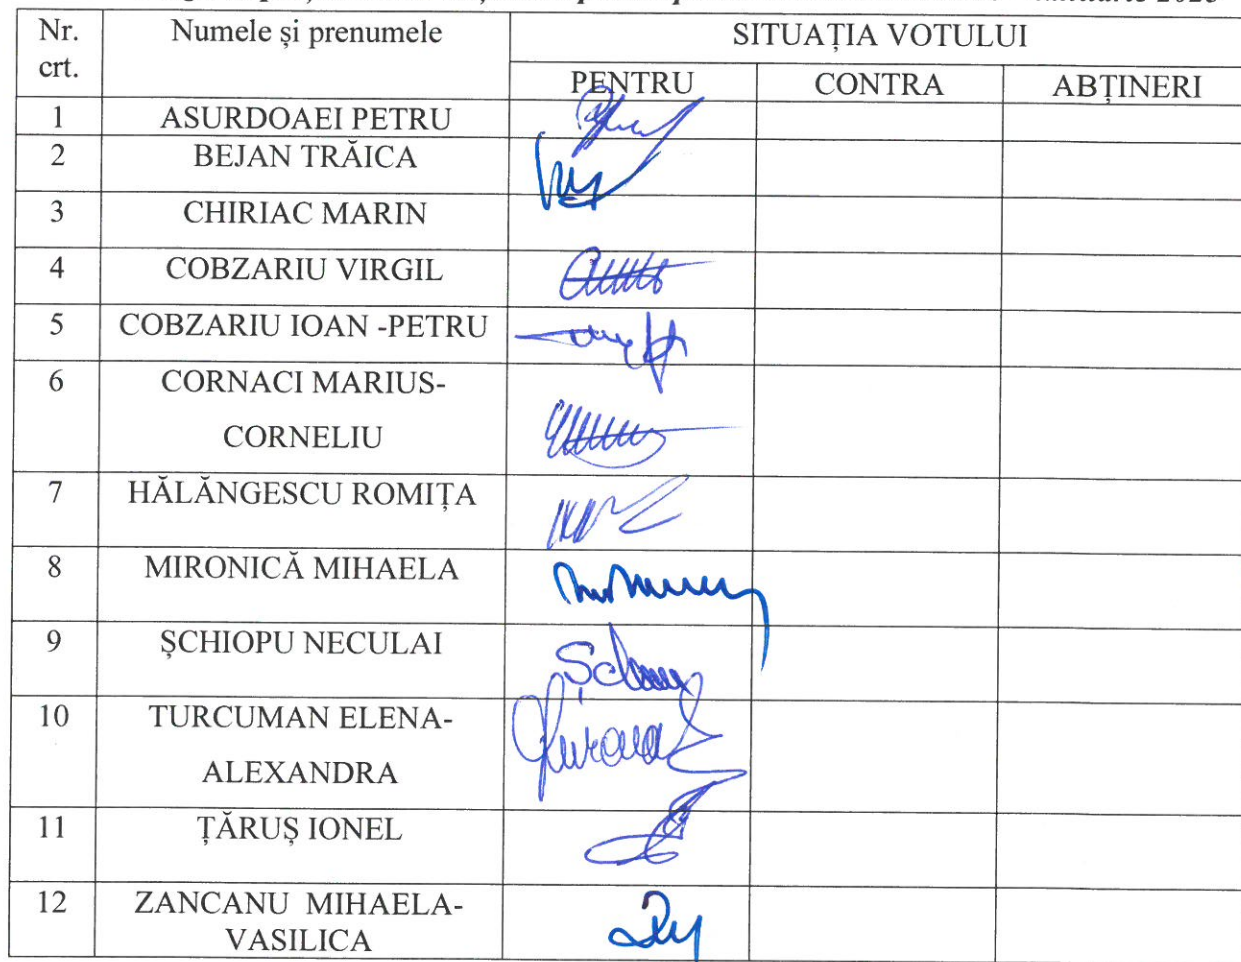 2023
Nr. crt. Numele și prenumele SITUAȚIA VOTULUI
PENTRU CONTRA ABȚINERI
1 ASURDOAEI PETRU
2 BEJAN TRĂICA
3 CHIRIAC MARIN
4 COBZARIU VIRGIL
5 COBZARIU IOAN -PETRU
6 CORNACI MARIUS-
CORNELIU
7 HĂLĂNGESCU ROMIȚA
8 MIRONICĂ MIHAELA
9 ȘCHIOPU NECULAI
10 TURCUMAN ELENA-
ALEXANDRA
11 ȚĂRUȘ IONEL
12 ZANCANU MIHAELA-
VASILICA